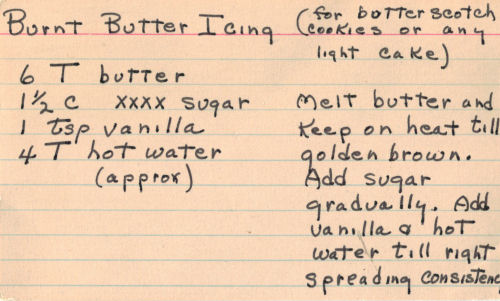 Burnt Butter Icing (for butterscotch
cookies or any
light cake)
6 T butter
1 ½ c xxxx sugar
1 tsp vanilla
4 T hot water
(approx)
Melt butter and
Keep on heat till
golden brown.
Add sugar
gradually. Add
vanilla & hot
water till right
spreading consistenc